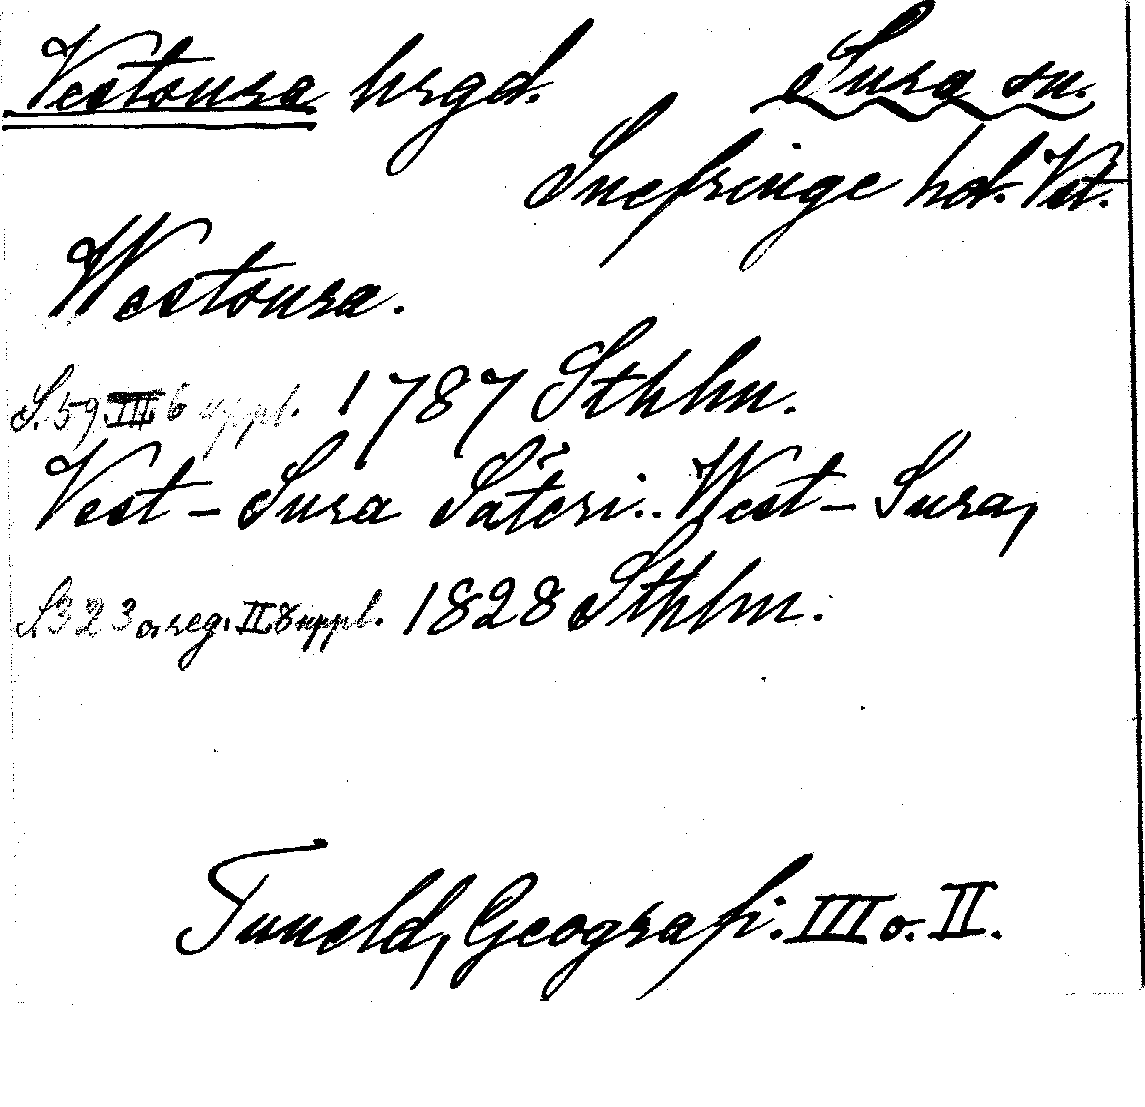 Vestsura hrgd. Sura sn.
Snefringe hd. Vst.
Westsura.
S. 59 III. 6 uppl. 1787 Sthlm.
Vest-Sura Säteri.. West-Sura,
S. 323 o. reg. II. 8 uppl. 1828 Sthlm.
Tuneld, Geografi. III o. II.